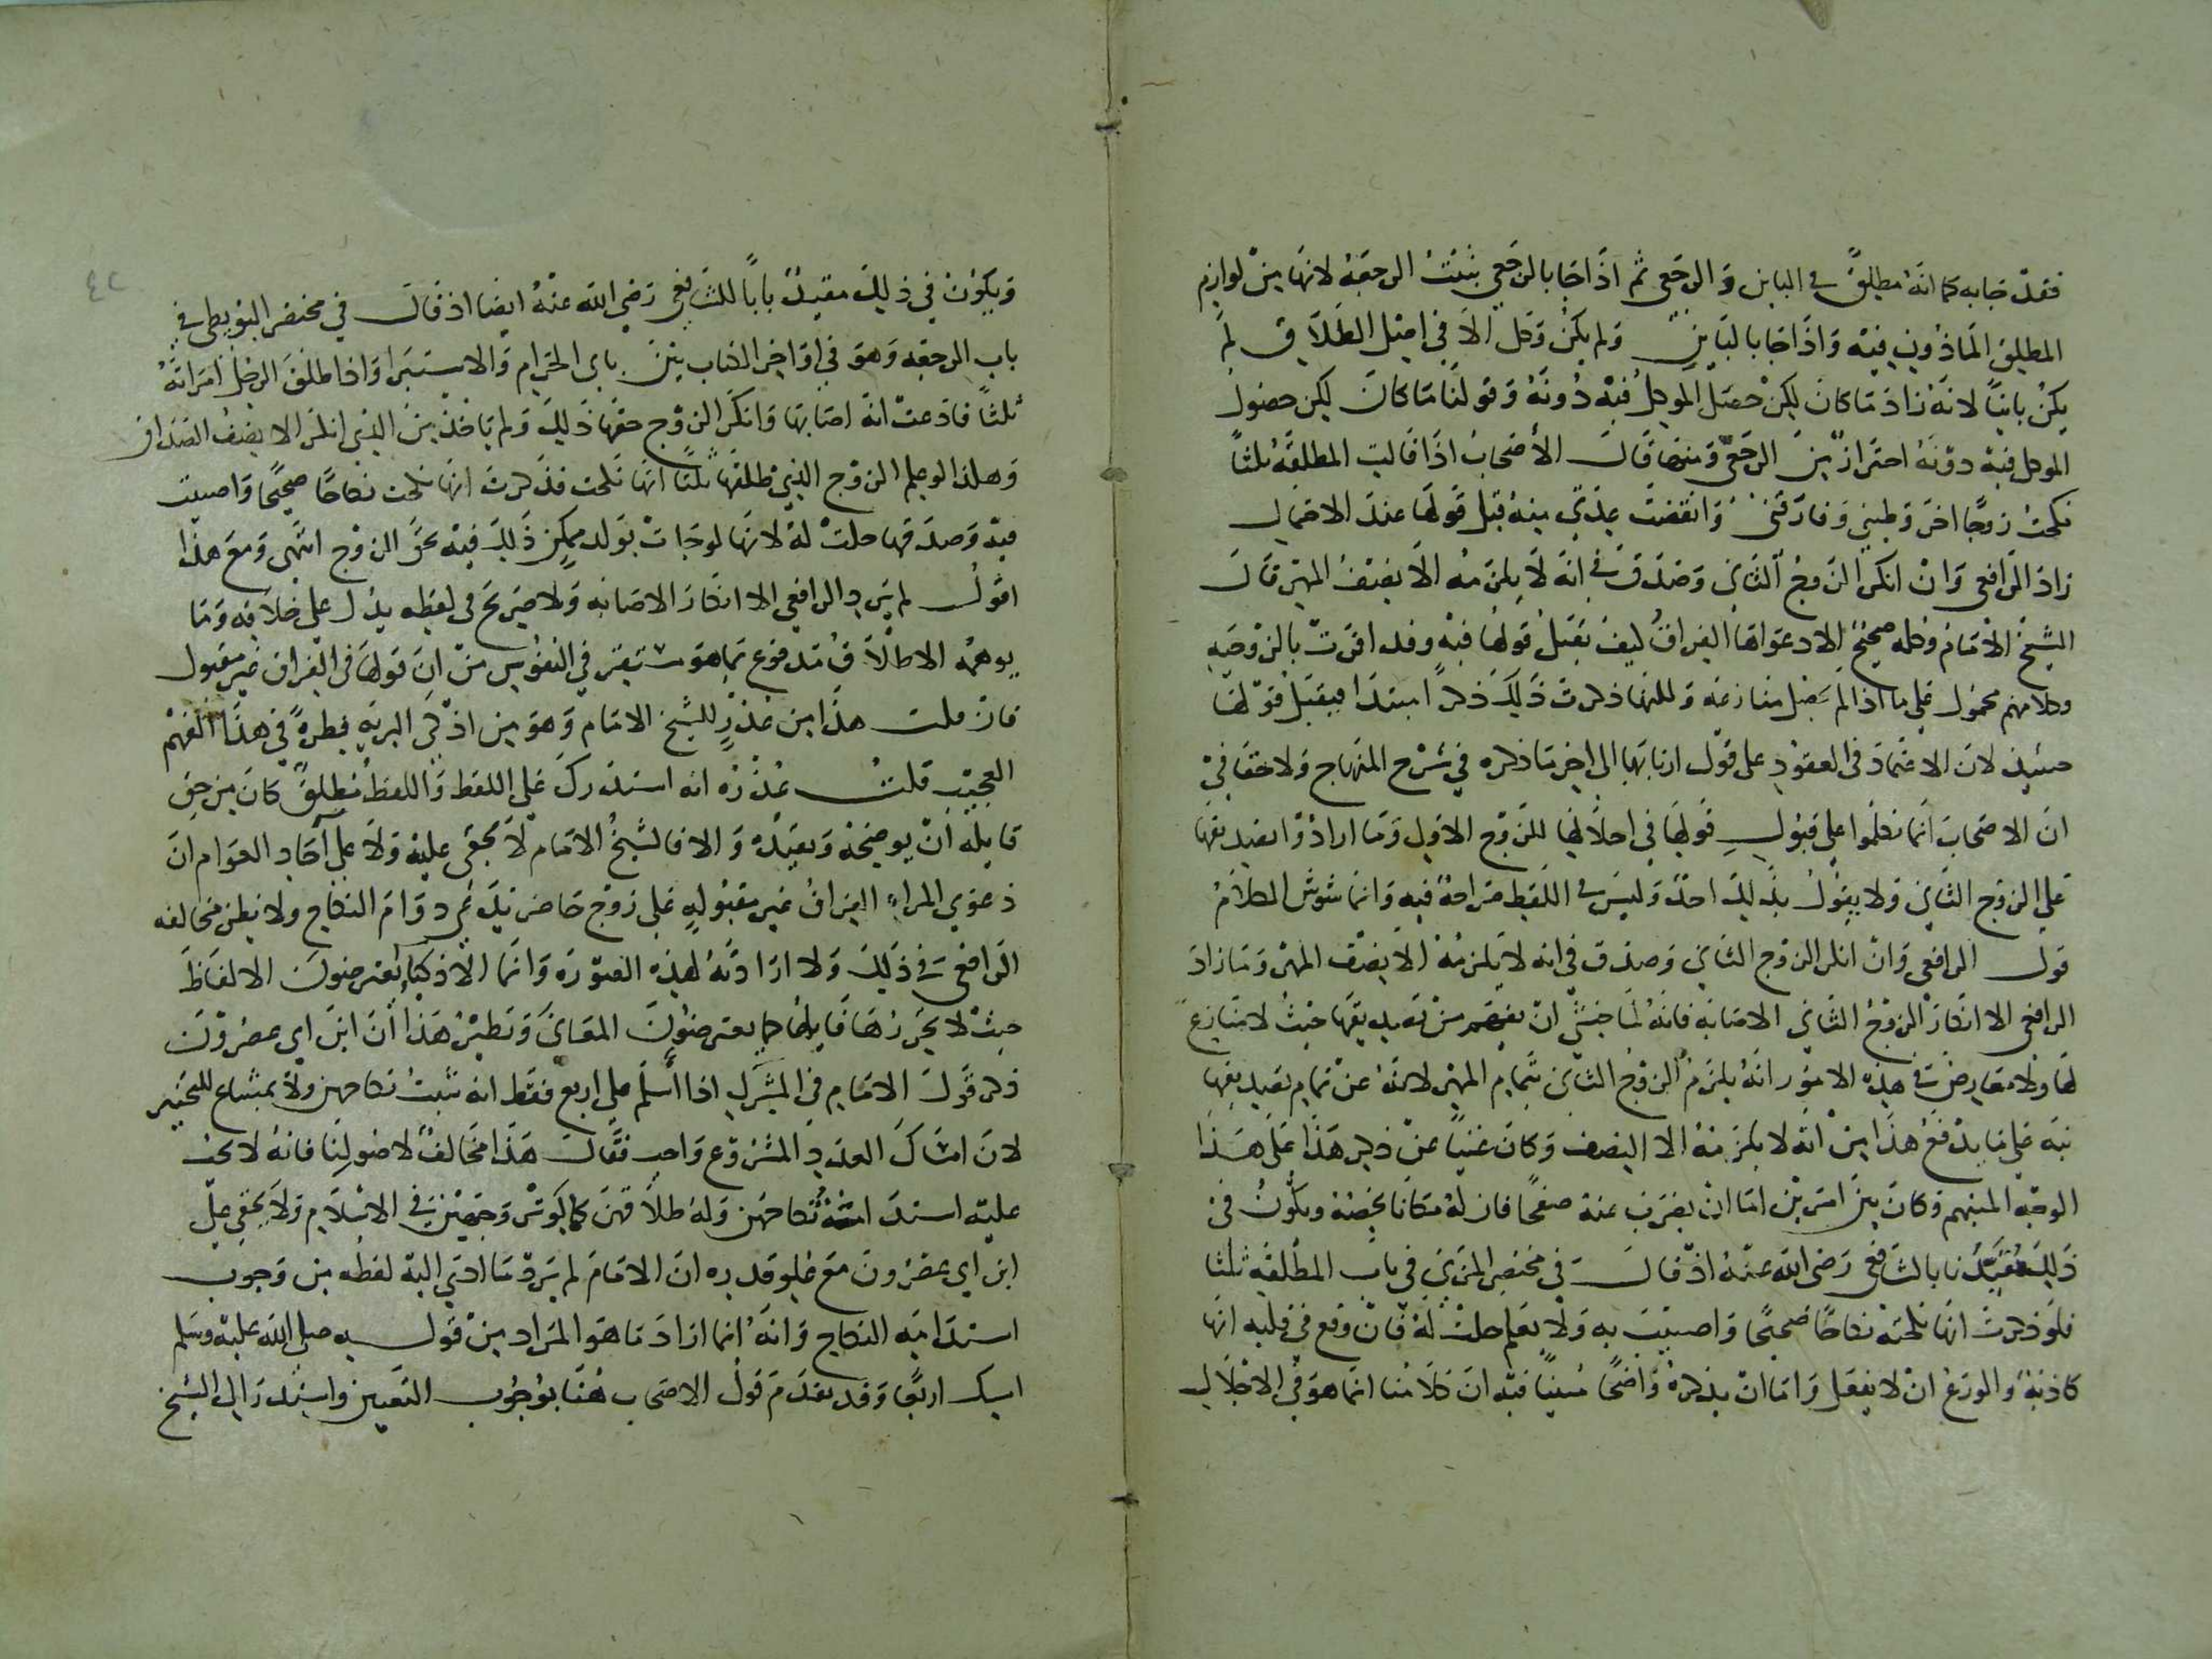 فقد جابه كما انه مطلق في الباين والرجعي ثم اذا جا بالرجعي يثبت الرجعة لانها من لوازم
المطلق الماذون فيه واذا جا بالباين ولم يكن وكل الا في اصل الطلاق لم
يكن باينا لانه زاد ما كان لكن حصل الموكل فيه دونه وقولنا ما كان لكن حصول
الموكل فيه دونه احتراز من الرجعي ومنها قال الاصحاب اذا قالت المطلقه ثلثا
نكحت زوجا اخر وطيني وفارقني وانقضت عدتي منه قبل قولها عند الاحتمال
زاد الرافعي وان انكر الزوج الثاني وصدق في انه لا يلزمه الا نصف المهر قال
الشيخ الامام وكله صحيح الا دعواها الفراق كيف يقبل قولها فيه وقد اقرت بالزوجيه
وكلامهم محمول على ما اذا لم يحصل منازعه ولكنها ذكرت ذلك ذكرا مبتدا فيقبل قولها
حينيذ لان الاعتماد في العقود على قول اربابها الى اخر ما ذكره في شرح المنهاج ولا خفا في
ان الاصحاب انما تكلموا على قبول قولها في احلالها للزوج الاول وما ارادوا تصديقها
على الزوج الثاني ولا يقول بذلك احد وليس في اللفظ صراحة فيه وانما شوش الكلام
قول الرافعي وان انكر الزوج الثاني وصدق في انه لا يلزمه الا نصف المهر وما زاد
الرافعي الا انكار الزوج الثاني الاصابه فانه لما خشي ان يفهم من تصديقها حيث لا منازع
لها ولا معارض في هذه الامور انه يلزم الزوج الثاني بتمام المهر لانه عن تمام تصديقها
نبه على ما يدفع هذا من انه لا يلزمه الا النصف وكان غنيا عن ذكر هذا على هذا
الوجه المبهم وكان بين امرين اما ان يضرب عنه صفحا فان له مكانا يخصه ويكون في
ذلك مقيدا بالشافعي رضي الله عنه اذ قال في مختصر المزني في باب المطلقه ثلثا
فلو ذكرت انها نكحت نكاحا صحيحا واصيبت به ولا يعلم حلت له فان وقع في قلبه انها
كاذبه والورع ان لا يفعل واما ان يذكره واضحا مبينا فيه ان كلامنا انما هو في الاحلال
ويكون في ذلك مقيدا بابا للشافعي رضي الله عنه ايضا اذ قال في مختصر البويطي في
باب الرجعه وهو في اواخر الكتاب بين بابى الحرام والاستبرا واذا طلق الرجل امراته
ثلثا فادعت انه اصابها وانكر الزوج حقها ذلك ولم تاخذ من الذي انكر الا نصف الصداق
وهكذا لو علم الزوج الذي طلقها ثلثا انها نكحت فذكرت انها نكحت نكاحا صحيحا واصيبت
فيه وصدقها حلت له لانها لو جات بولد يمكن ذلك فيه لحق الزوج انتهى ومع هذا
اقول لم يرد الرافعي الا انكار الاصابه ولا صريح في لفظه يدل على خلافه وما
يوهمه الاطلاق مدفوع بما هو مستقر في النفوس من ان قولها في الفراق غير مقبول
فان قلت هذا من عذر للشيخ الامام وهو من اذكى البريه فطرة في هذا الفهم
العجيب قلت عذره انه استدرك على اللفظ واللفظ مطلق كان من حق
قايله ان يوضحه ويقيده والا فالشيخ الامام لا يخفى عليه ولا على آحاد العوام ان
دعوي المراه الفراق غير مقبوله على زوج حاضر يدعي دوام النكاح ولا يظن مخالفه
الرافعي في ذلك ولا ارادته لهذه الصوره وانما الاذكيا يعترضون الالفاظ
حيث لا يحررها قايلها كما يعترضون المعاني ونظير هذا ان ابن ابي عصرون
ذكر قول الامام في المشرك اذا اسلم على اربع فقط انه يثبت نكاحهن ولا يمتنع للتخير
لان امساك العدد المشروع واجب فقال هذا مخالف لاصولنا فانه لا يجب
عليه استدامة نكاحهن وله طلاقهن كما لو تزوجهن في الاسلام ولا يخفى على
ابن ابي عصرون مع علو قدره ان الامام لم يرد ما ادى اليه لفظه من وجوب
استدامه النكاح وانه انما اراد ما هو المراد من قوله صلى الله عليه وسلم
امسك اربعا وقد تقدم قول الاصحاب هنا بوجوب التعيين واستدرا الشيخ
٤٢